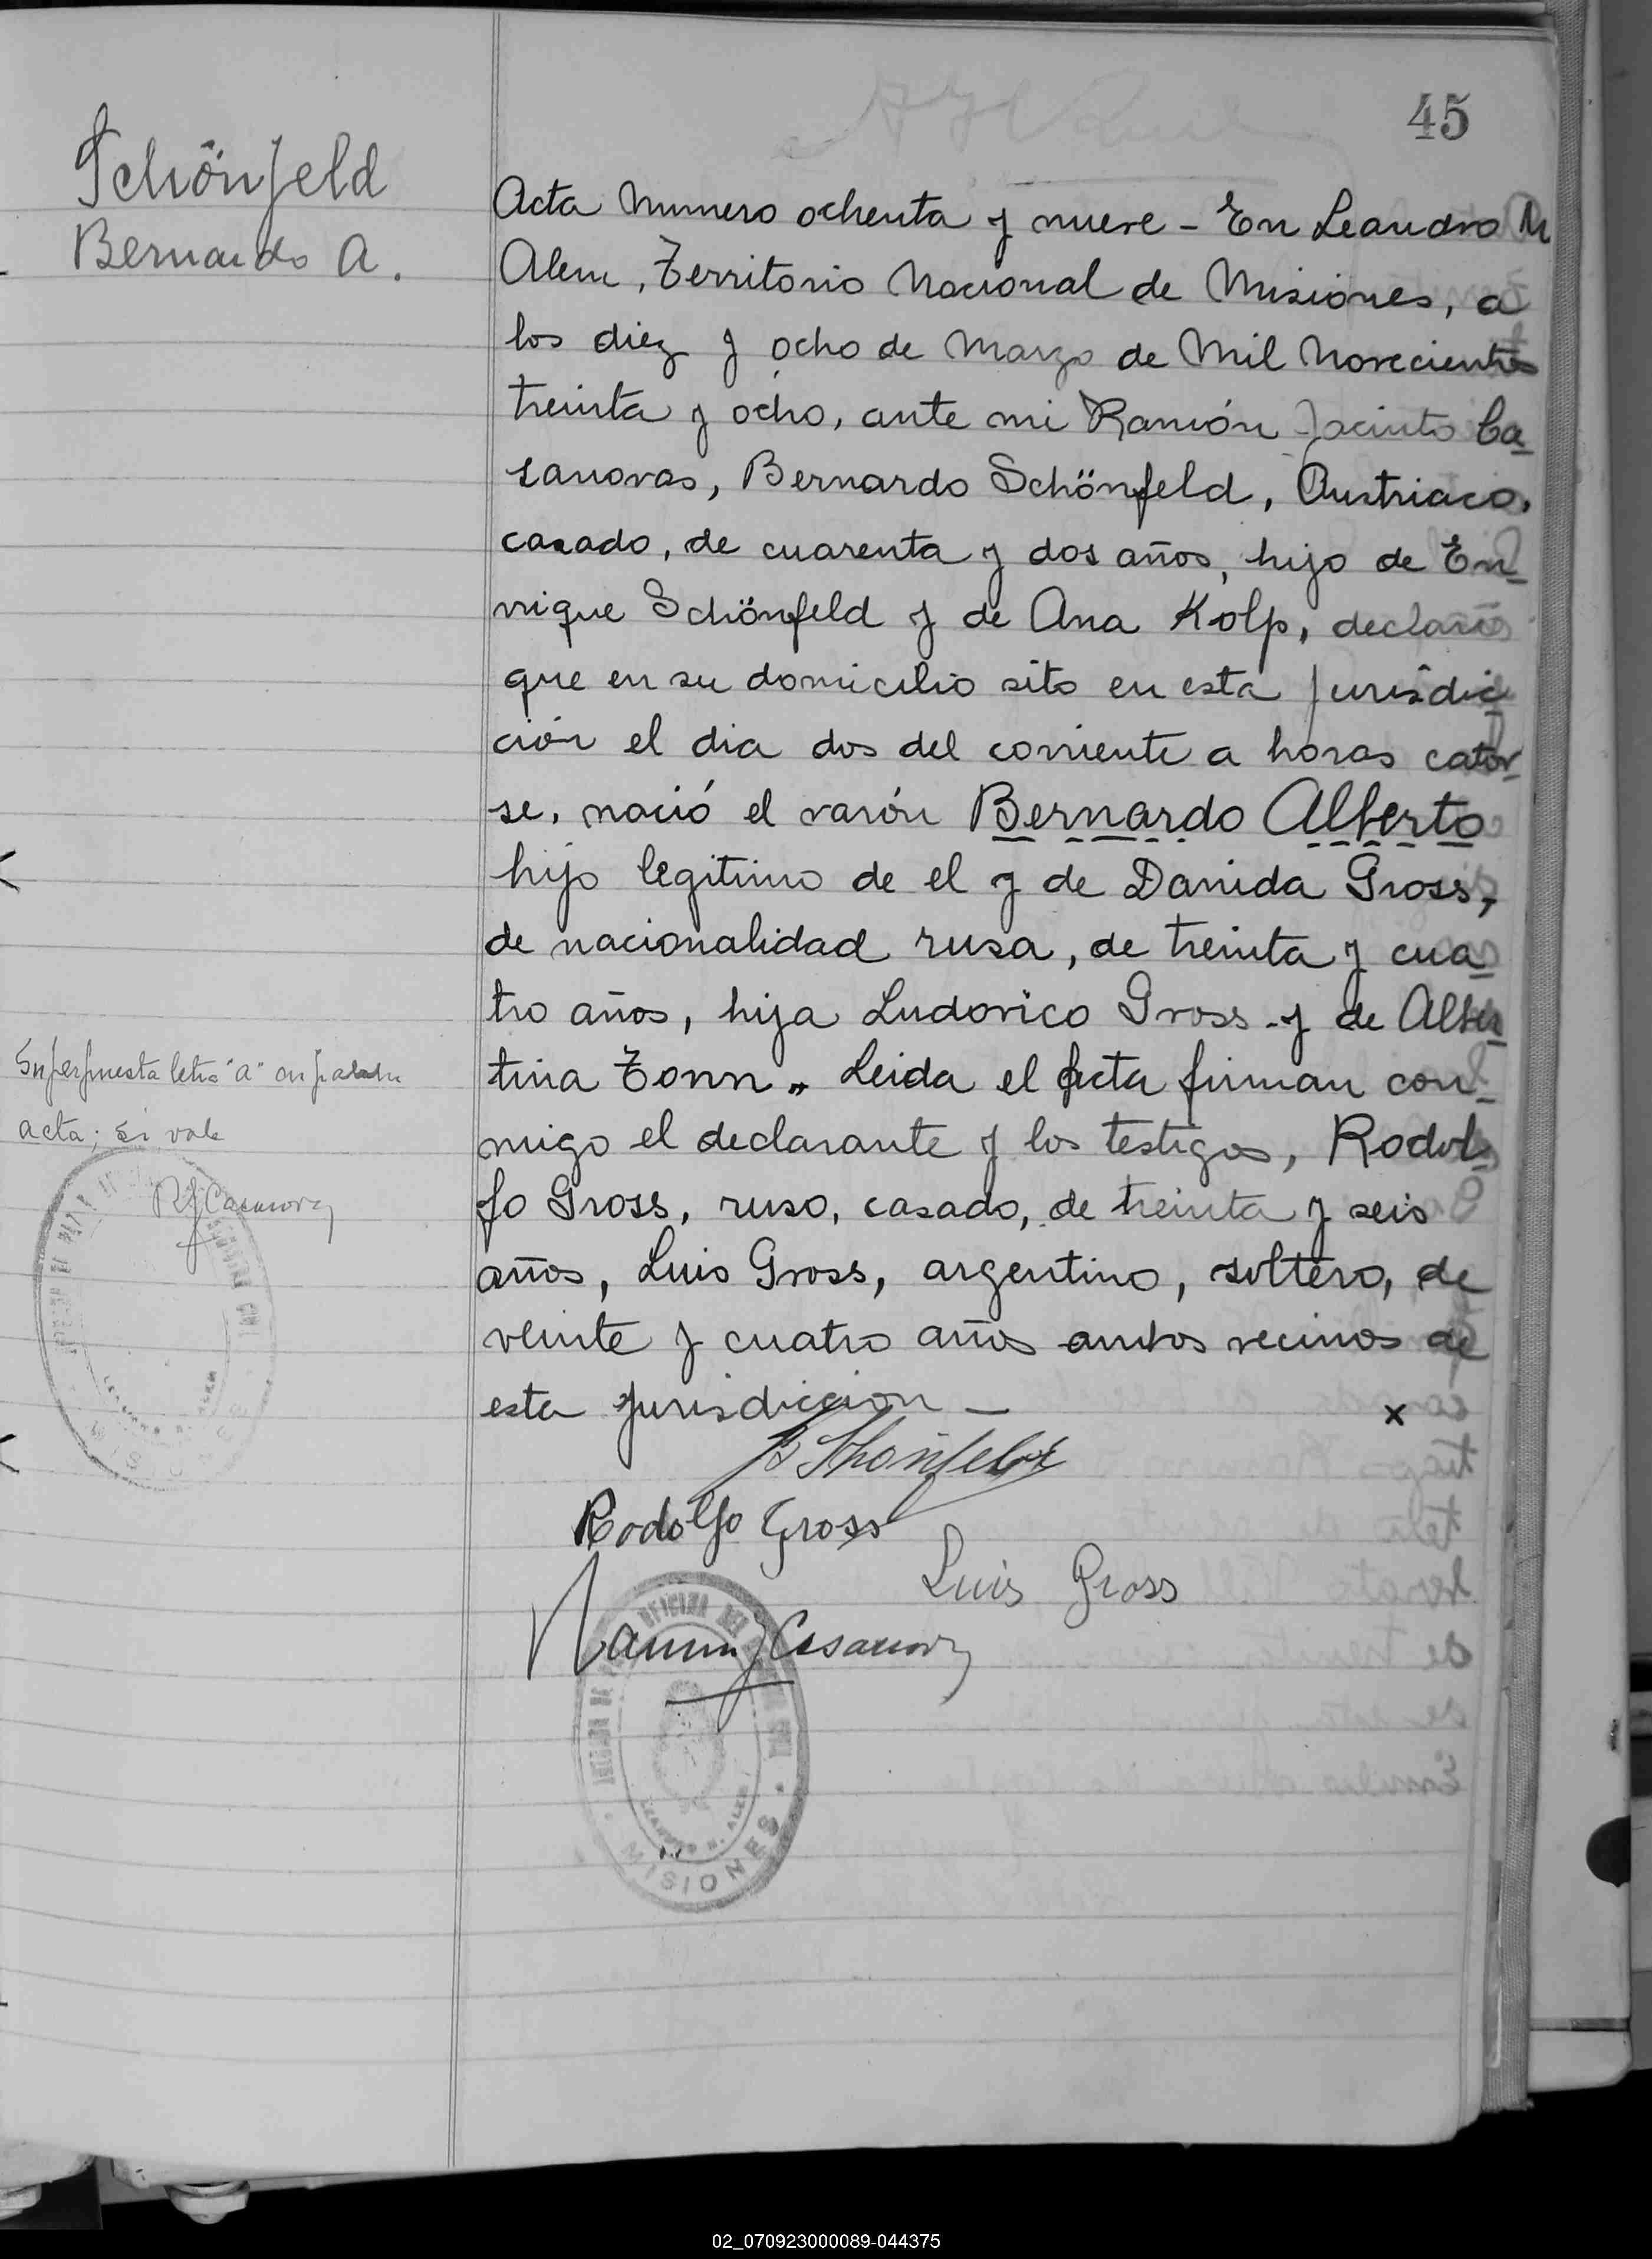 45
Schönfeld
Bernardo A.
Acta Numero ochenta y nueve - En Leandro N
Alem, Territorio Nacional de Misiones, a
los diez y ocho de Marzo de Mil Novecientos
treinta y ocho, ante mi Ramón Jacinto Ca
sanovas, Bernardo Schönfeld, Austriaco,
casado, de cuarenta y dos años, hijo de En-
rique Schönfeld y de Ana Kolp, declaró
que en su domicilio sito en esta jurisdic
ción el dia dos del corriente a horas cator-
se, nació el varón Bernardo Alberto
hijo legitimo de el y de Danida Gross,
de nacionalidad rusa, de treinta y cua-
tro años, hija Ludovico Gross y de Alber
tina Tonn „ Leida el acta firman con-
migo el declarante y los testigos, Rodol-
fo Gross, ruso, casado, de treinta y seis
años, Luis Gross, argentino, soltero, de
veinte y cuatro años ambos vecinos de
esta jurisdiccion —
x
Superpuesta letra "a" en palabra
acta; si vale
RJCasanovas
B Shönfeld
Rodolfo Gross
Luis Gross
Ramón J Casanovas
OFICINA DEL
LEANDRO N. ALEM
MISIONES
02_070923000089-044375